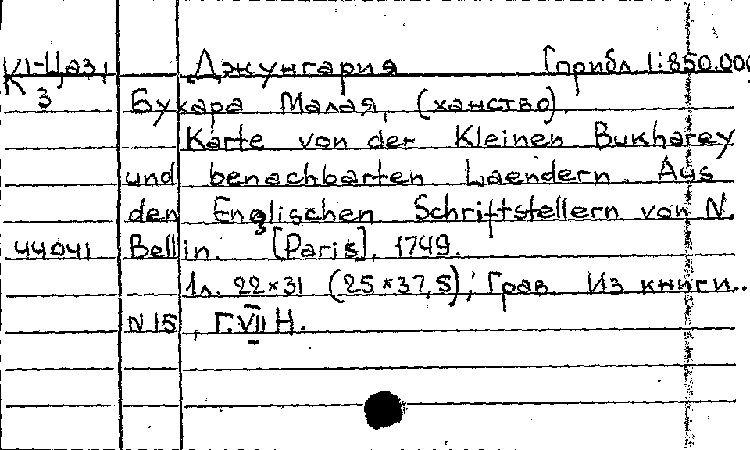 К1-Цаз, Джунгария [прибл 1:850.000
К 3 Бухара Малая, (ханство).
Karte von der Kleinen Bukharey
und benachbarten Laendern. Aus
den Englischen Schriftstellern von N.
44041 Bellin. [Paris], 1749.
1л. 22×31 (25×37,5); Грав. Из книги..
N 15, Г.VII Н.